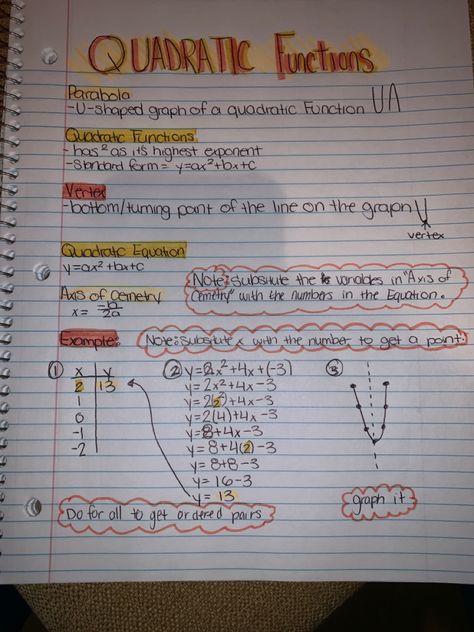 QUADRATIC Functions
Parabola
-U-shaped graph of a quadratic Function
Quadratic Functions
-has ² as its highest exponent
-standard form = y=ax²+bx+c
Vertex
-bottom/turning point of the line on the graph
vertex
Quadratic Equation
y=ax²+bx+c
Note: substitute the variables in "Axis of
Cemetry" with the numbers in the Equation.
Axis of Cemetry
x = -b/2a
Example:
Note: Substitute x with the number to get a point.
① x y
2 13
1
0
-1
-2
② y=2x²+4x+(-3)
y=2x²+4x-3
y=2(2²)+4x-3
y=2(4)+4x-3
y=8+4x-3
y=8+4(2)-3
y=8+8-3
y=16-3
y=13
③
graph it
Do for all to get ordered pairs